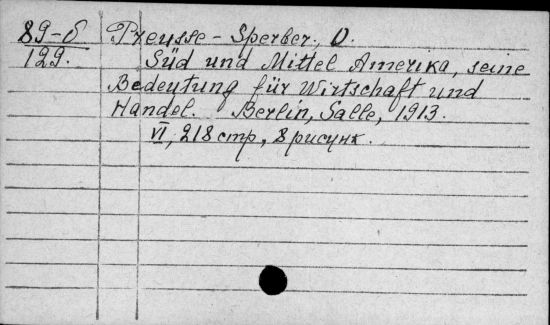 89-б
129.
Preusse-Sperber, O.
Süd und Mittel Amerika, seine
Bedeutung für Wirtschaft und
Handel. Berlin, Salle, 1913.
VI, 218 стр, 8 рисунк.